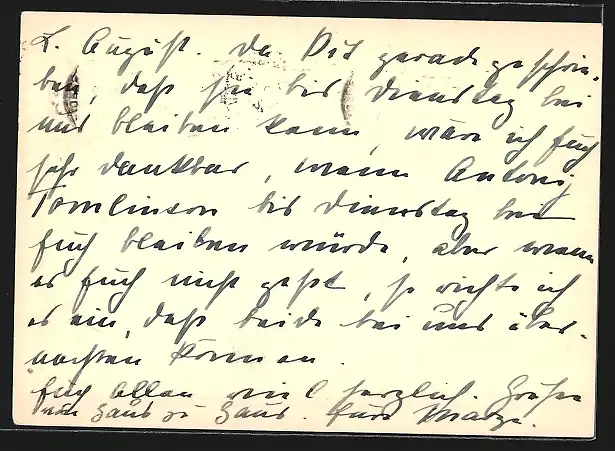 L. August. da Dit gerade geschrie-
ben, daß sie bis Dienstag bei
uns bleiben kann, wäre ich Euch
sehr dankbar, wenn Antony
Tomlinson bis Dienstag bei
Euch bleiben würde, aber wenn
es Euch nicht geht, so richte ich
es ein, daß beide bei uns über-
nachten können.
Euch allen viel herzlich. Grüße
von Haus zu Haus. Eure